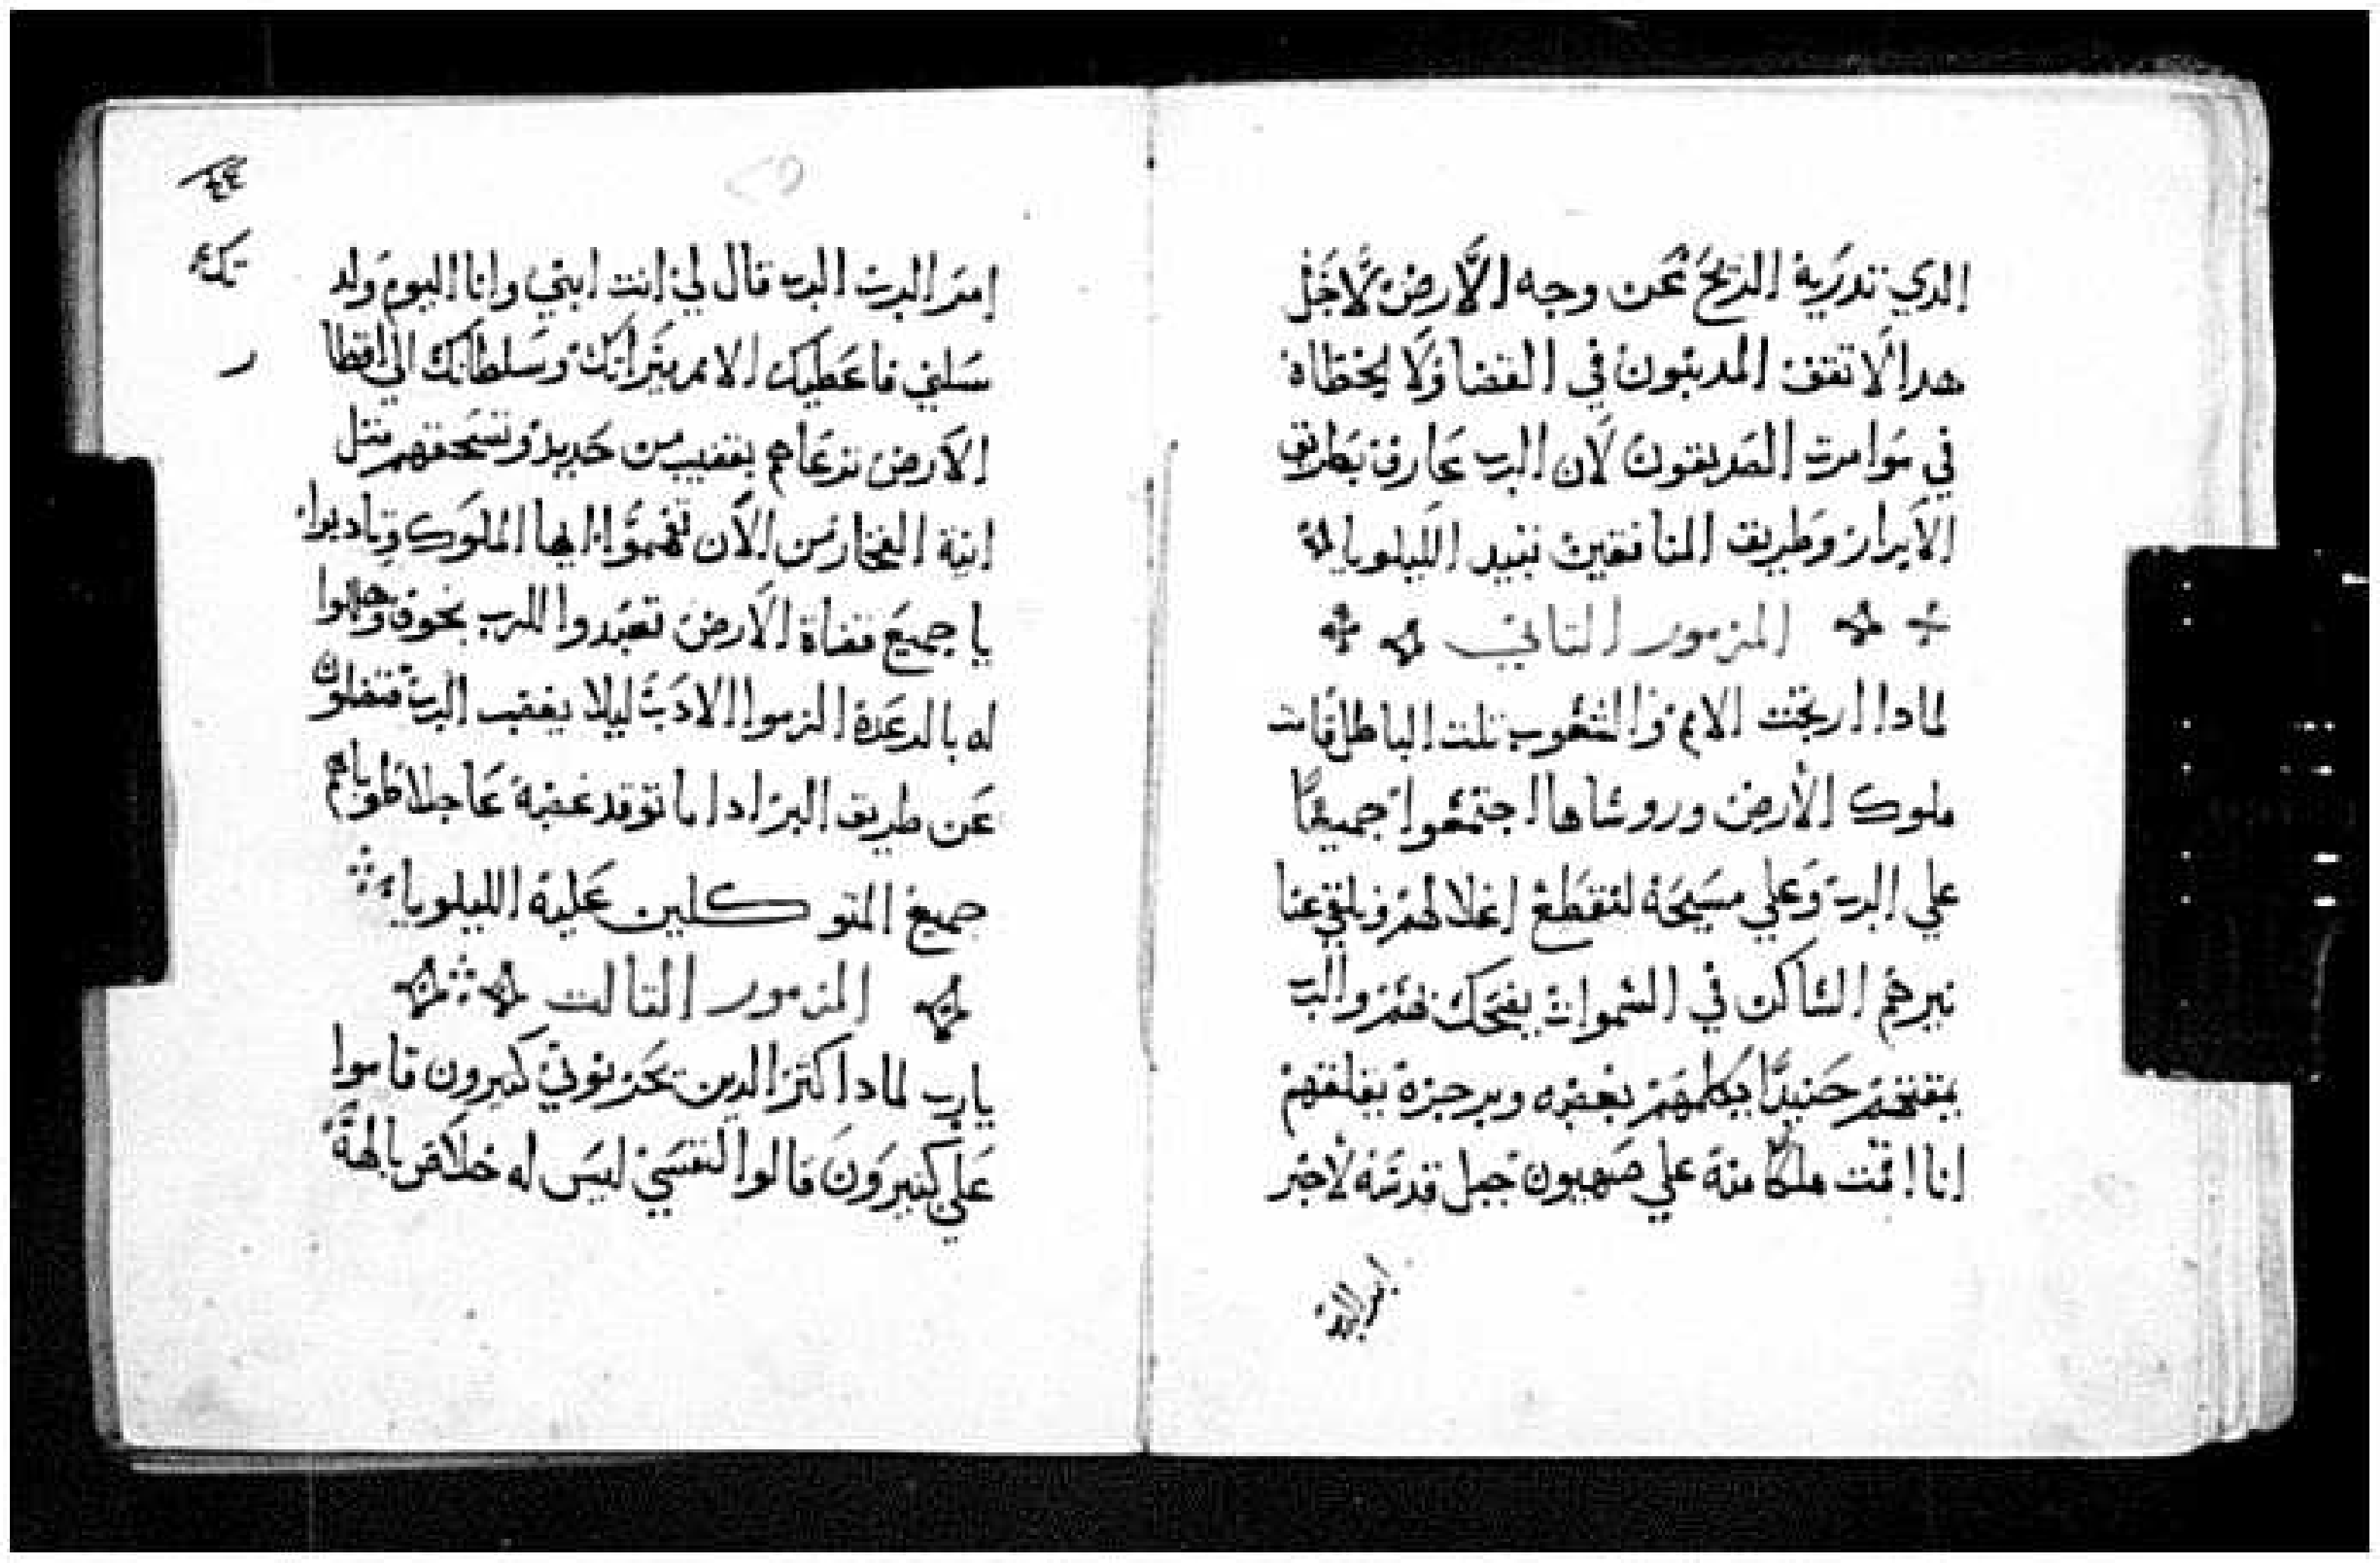 الدي تدرية الريح عن وجه الارض لاجل
هدا لا تقف المدبنون في القضا ولا الخطاه
في موامرت الصديقون لان الرب عارف بطريق
الابرار وطريق المنافقين تبيد الليلويا
المزمور التاني
لمادا ارتجت الامم والشعوب تلت الباطل قامت
ملوك الارض وروساها اجتمعوا جميعا
علي الرب وعلي مسيحة لنقطع اغلالهم ونلقي عنا
نيرهم الساكن في السموات يضحك بهم والرب
يمقتهم حنيدا يكلمهم بغضبه وبرجزه يقلقهم
انا اقمت ملكا منه علي صهيون جبل قدسه لاخبر
امر الرب
امر الرب الرب قال لي انت ابني وانا اليوم ولد
سلني فاعطيك الامم ميراتك وسلطانك الي اقطا
ر
الارض ترعاهم بقضيب من حديد وتسحقهم متل
انية الفخار من الان تفهموا ايها الملوك وتادبوا
يا جميع قضاة الارض تعبدوا للرب بخوف وهللوا
له بالرعدة الزموا الادب ليلا يغضب الرب فتضلون
عن طريق البر ادا ما توقد غضبه عاجلا فطوباهم
جميع المتوكلين علية الليلويا
المزمور التالت
يارب لمادا كتر الدين يحزنوني كتيرون قاموا
علي كتيرون قالوا لنفسي ليس له خلاص بالهة